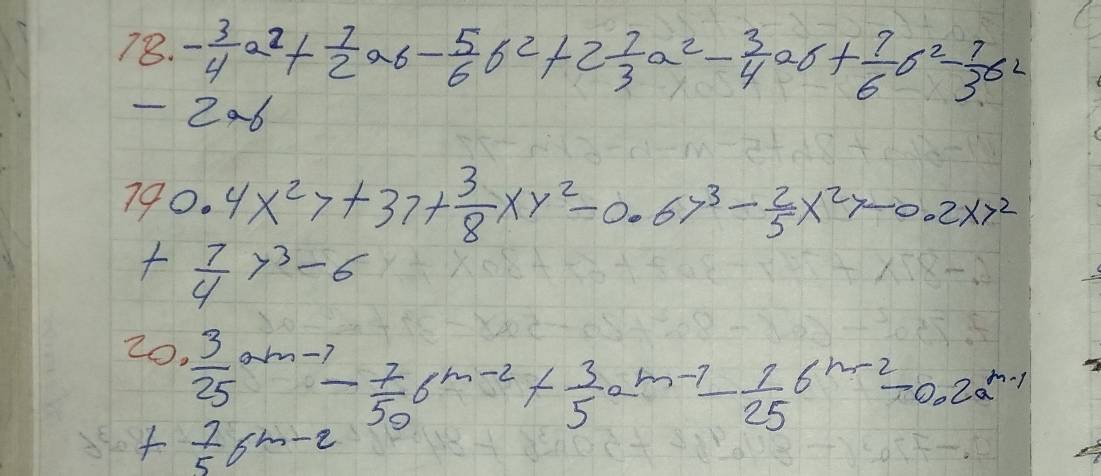 18. -3/4 a² + 1/2 ab - 5/6 b² + 2 1/3 a² - 3/4 ab + 1/6 b² - 1/3 b²
- 2ab
19 0.4x²y + 31 + 3/8 xy² - 0.6y³ - 2/5 x²y - 0.2xy²
+ 1/4 y³ - 6
20. 3/25 a^(m-1) - 1/50 b^(m-2) + 3/5 a^(m-1) - 1/25 b^(m-2) - 0.2a^(m-1)
+ 1/5 b^(m-2)